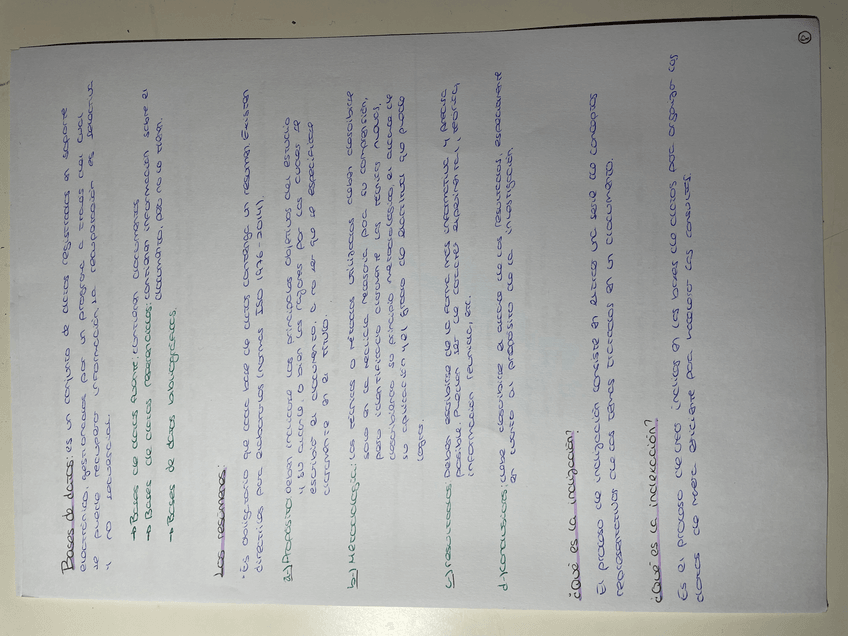 Bases de datos: es un conjunto de datos registrados en soporte
electrónico, gestionados por un programa a través del cual
se puede recuperar información. La recuperación es selectiva
y no secuencial.
→ Bases de datos fuente: contienen documentos
→ Bases de datos referenciales: contienen información sobre el
documento, pero no lo tienen.
→ Bases de datos bibliográficas.
Los resúmenes:
· Es obligatorio que cada base de datos contenga un resumen. Existen
directivas para elaborarlos (normas ISO 1976-2014).
a) Propósito: Deben indicarse los principales objetivos del estudio
y su alcance, o bien las razones por las cuales se
escribió el documento, a no ser que se especifique
claramente en el título.
b) Metodología: Las técnicas o métodos utilizados deben describirse
solo en la medida necesaria para su comprensión,
pero identificando claramente las técnicas nuevas,
describiendo su principio metodológico, el alcance de
su aplicación y el grado de exactitud que puede
lograr.
c) resultados: Deben escribirse de la forma más informativa y precisa
posible. Pueden ser de carácter experimental, teórico,
información reunida, etc.
d) Conclusiones: debe describirse el alcance de los resultados, especialmente
en cuanto al propósito de la investigación
¿Qué es la indización?
El proceso de indización consiste en extraer una serie de conceptos
representativos de los temas tratados en un documento.
¿Qué es la indexación?
Es el proceso de crear índices en las bases de datos para organizar los
datos de manera eficiente para hacer las consultas.